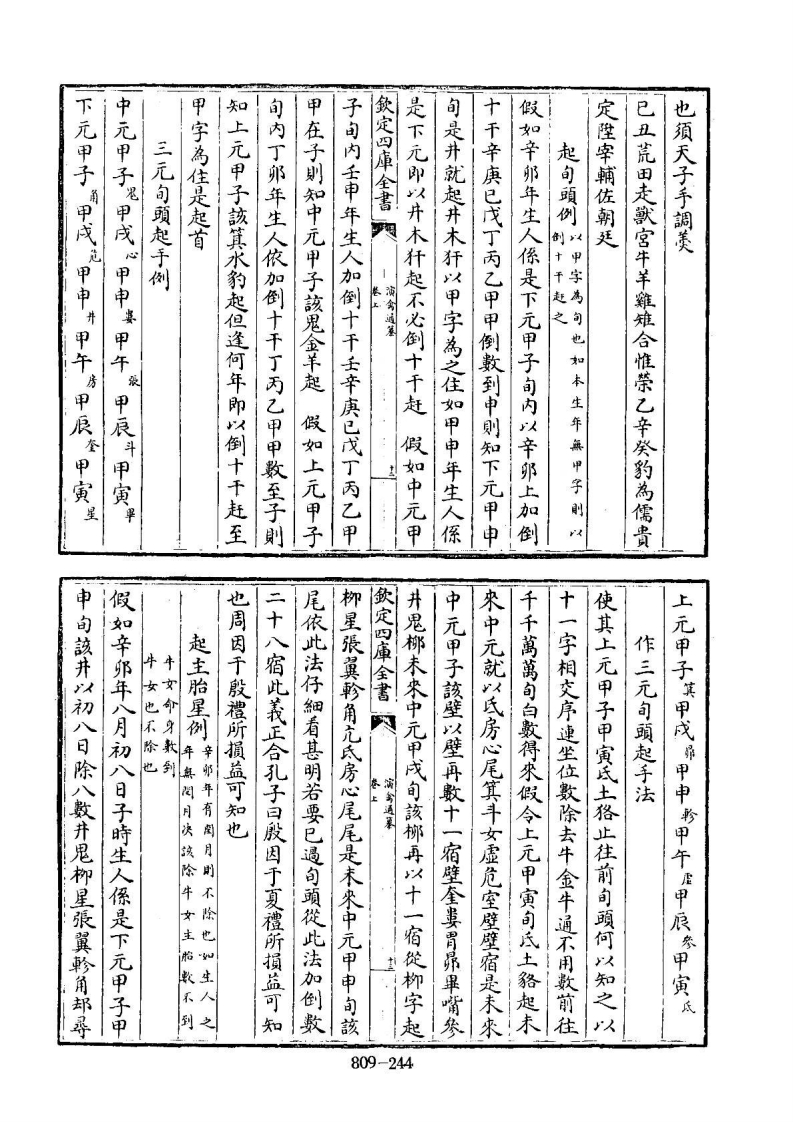 也須天子手調羹
己丑荒田走獸宮牛羊雞雉合惟榮乙辛癸豹為儒貴
定陞宰輔佐朝廷
起旬頭例以甲字為旬也如本生年無甲字則以倒十干赶之
假如辛卯年生人係是下元甲子旬內以辛卯上加倒
十干辛庚己戊丁丙乙甲甲倒數到申則知下元甲申
旬是井就起井木犴以甲字為之住如甲申年生人係
是下元即以井木犴起不必倒十干赶 假如中元甲
欽定四庫全書 演禽通纂 卷上 十二
子旬內壬申年生人加倒十干壬辛庚己戊丁丙乙甲
甲在子則知中元甲子該鬼金羊起 假如上元甲子
旬內丁卯年生人依加倒十干丁丙乙甲甲數至子則
知上元甲子該箕水豹起但逢何年即以倒十干赶至
甲字為住是起首
三元旬頭起手例
中元甲子鬼甲戌心甲申婁甲午張甲辰斗甲寅畢
下元甲子角甲戌危甲申井甲午房甲辰奎甲寅星
上元甲子箕甲戌昴甲申軫甲午虛甲辰參甲寅氐
作三元旬頭起手法
使其上元甲子甲寅氐土狢止往前旬頭何以知之以
十一字相交序連坐位數除去牛金牛過不用數前往
千千萬萬旬白數得來假令上元甲寅旬氐土貉起未
來中元就以氐房心尾箕斗女虛危室壁壁宿是未來
中元甲子該壁以壁再數十一宿壁奎婁胃昴畢嘴參
井鬼柳未來中元甲戌旬該柳再以十一宿從柳字起
欽定四庫全書 演禽通纂 卷上 十三
柳星張翼軫角亢氐房心尾尾是未來中元甲申旬該
尾依此法仔細看甚明若要已過旬頭從此法加倒數
二十八宿此義正合孔子曰殷因于夏禮所損益可知
也周因于殷禮所損益可知也
起主胎星例辛卯年有閏月則不除也如生人之年無閏月决該除牛女主胎數不到
牛女命身數到牛女也不除也
假如辛卯年八月初八日子時生人係是下元甲子甲
申旬該井以初八日除八數井鬼柳星張翼軫角却尋
809-244